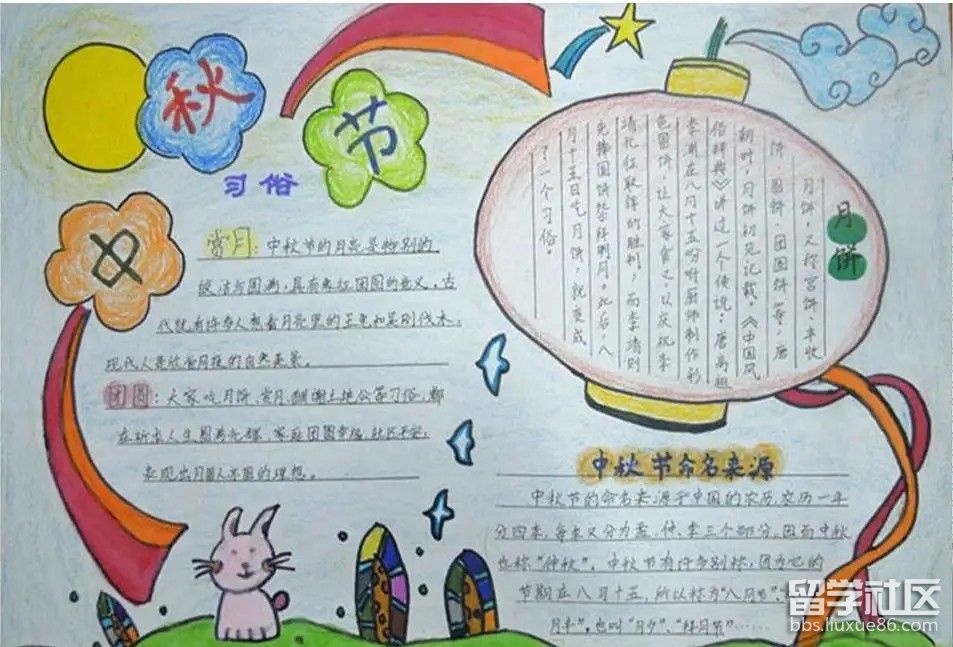 中
秋
节
习俗
赏月：中秋节的月亮是特别的
皎洁与圆满，具有象征团圆的意义，古
代就有许多人想看月亮里的玉兔和吴刚伐木，
现代人喜欣赏月夜的自然美景。
团圆：大家吃月饼、赏月、酬谢土地公等习俗，都
在祈求人生圆满无缺、家庭团圆幸福、社区平安，
表现出月圆人亦圆的理想。
月饼
月饼，又称宫饼、丰收
饼、团圆饼等，唐
朝时，月饼初见记载。《中国风
俗辞典》讲过一个传说：唐高祖
李渊在八月十五吩咐厨师制作彩
色圆饼，让大家食之，以庆祝李
靖北征取得的胜利，而李靖则
先捧圆饼祭拜明月。此后，八
月十五日吃月饼，就变成
了一个习俗。
中秋节命名来源
中秋节的命名来源于中国的农历，农历一年
分四季，每季又分为孟、仲、季三个部分，因而中秋
也称“仲秋”。中秋节有许多别称，因为它的
节期在八月十五，所以称为“八月节”、
月半”，也叫“月夕”、“拜月节”……
留学社区
bbs.liuxue86.com